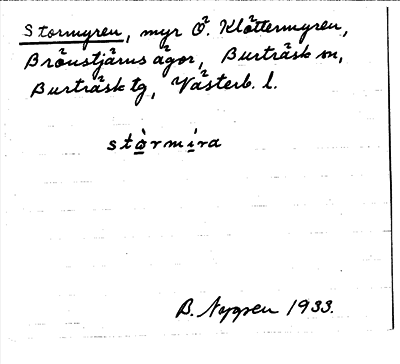 Stormyren, myr Ö. Klöttermyren,
Brönstjärns ägor, Burträsk sn,
Burträsk tg, Västerb. l.
stòrmira
B. Nygren 1933.